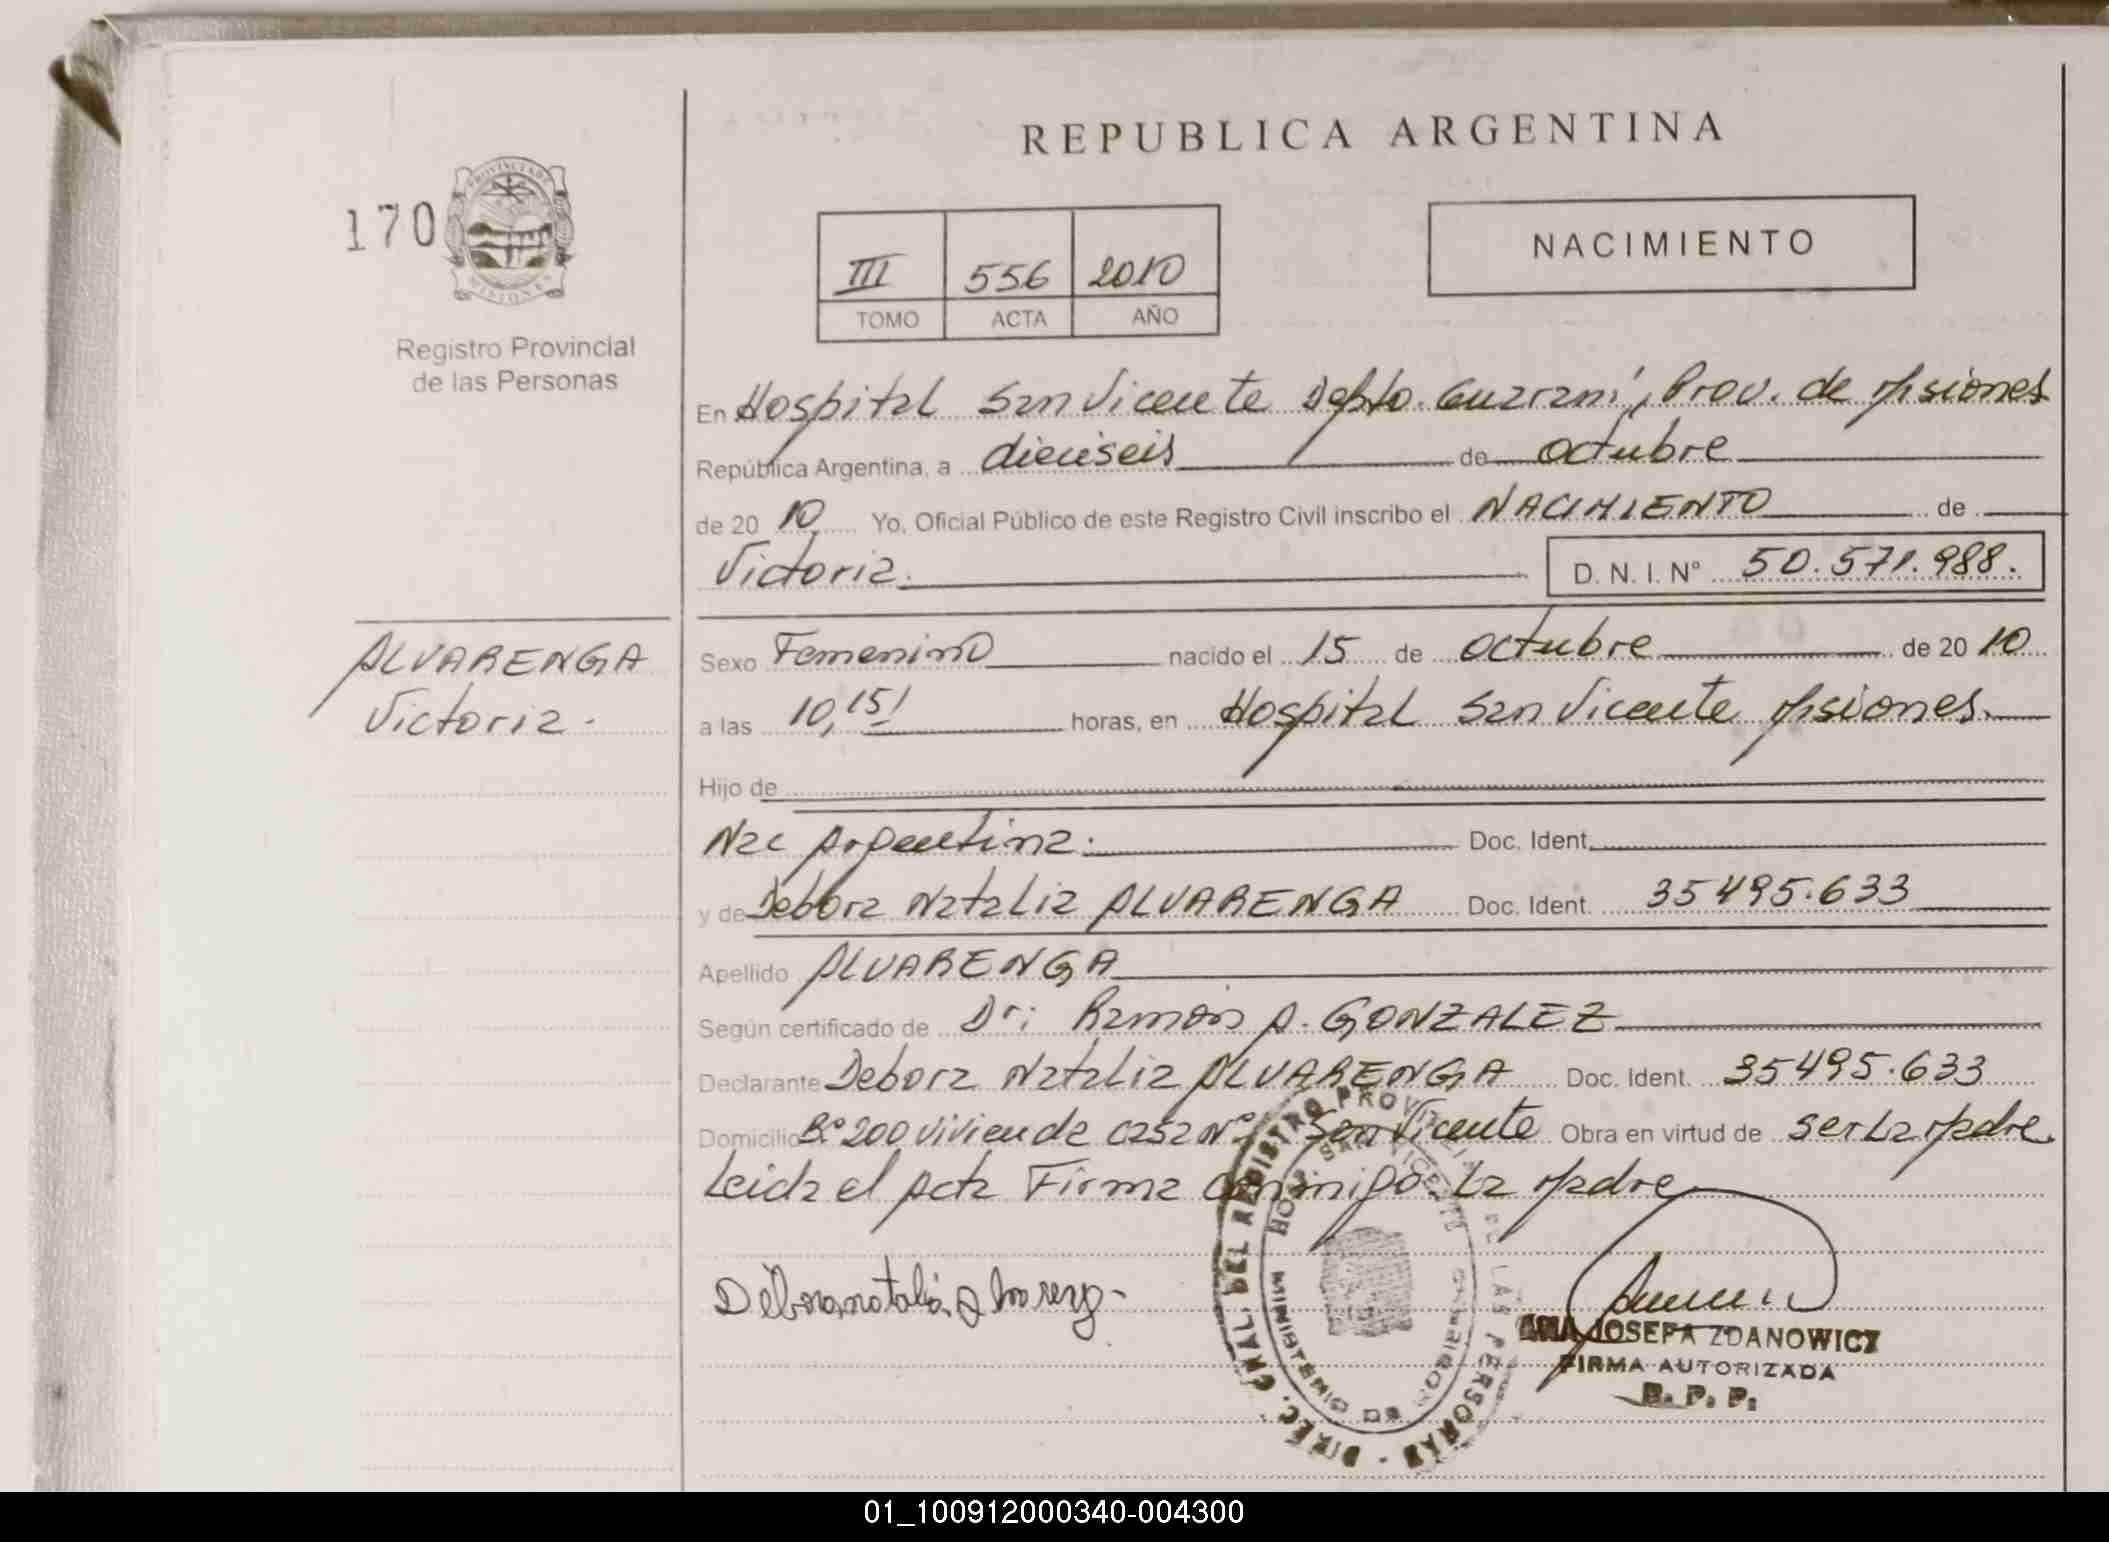 REPUBLICA ARGENTINA
170
PROVINCIA DE
MISIONES
Registro Provincial
de las Personas
III 556 2010
TOMO ACTA AÑO
NACIMIENTO
En Hospital San Vicente Depto. Guarani, Prov. de Misiones
República Argentina, a dieciseis de octubre
de 20 10 Yo, Oficial Público de este Registro Civil inscribo el NACIMIENTO de
Victoria. D. N. I. Nº 50.571.988.
ALVARENGA
Victoria.
Sexo Femenino nacido el 15 de octubre de 20 10
a las 10,15 horas, en Hospital San Vicente Misiones.
Hijo de
Nac Argentina. Doc. Ident.
y de Debora Natalia ALVARENGA Doc. Ident. 35495.633
Apellido ALVARENGA
Según certificado de Dr: Ramón A. GONZALEZ
Declarante Debora Natalia ALVARENGA Doc. Ident. 35495.633
Domicilio Bº 200 vivienda casa Nº San Vicente Obra en virtud de ser La Madre.
Leida el Acta Firma conmigo La Madre
DIREC. GRAL. DEL REGISTRO PROVINCIAL DE LAS PERSONAS
HOSP. SAN VICENTE
MINISTERIO DE GOBIERNO
ANA JOSEFA ZDANOWICZ
FIRMA AUTORIZADA
R. P. P.
01_100912000340-004300